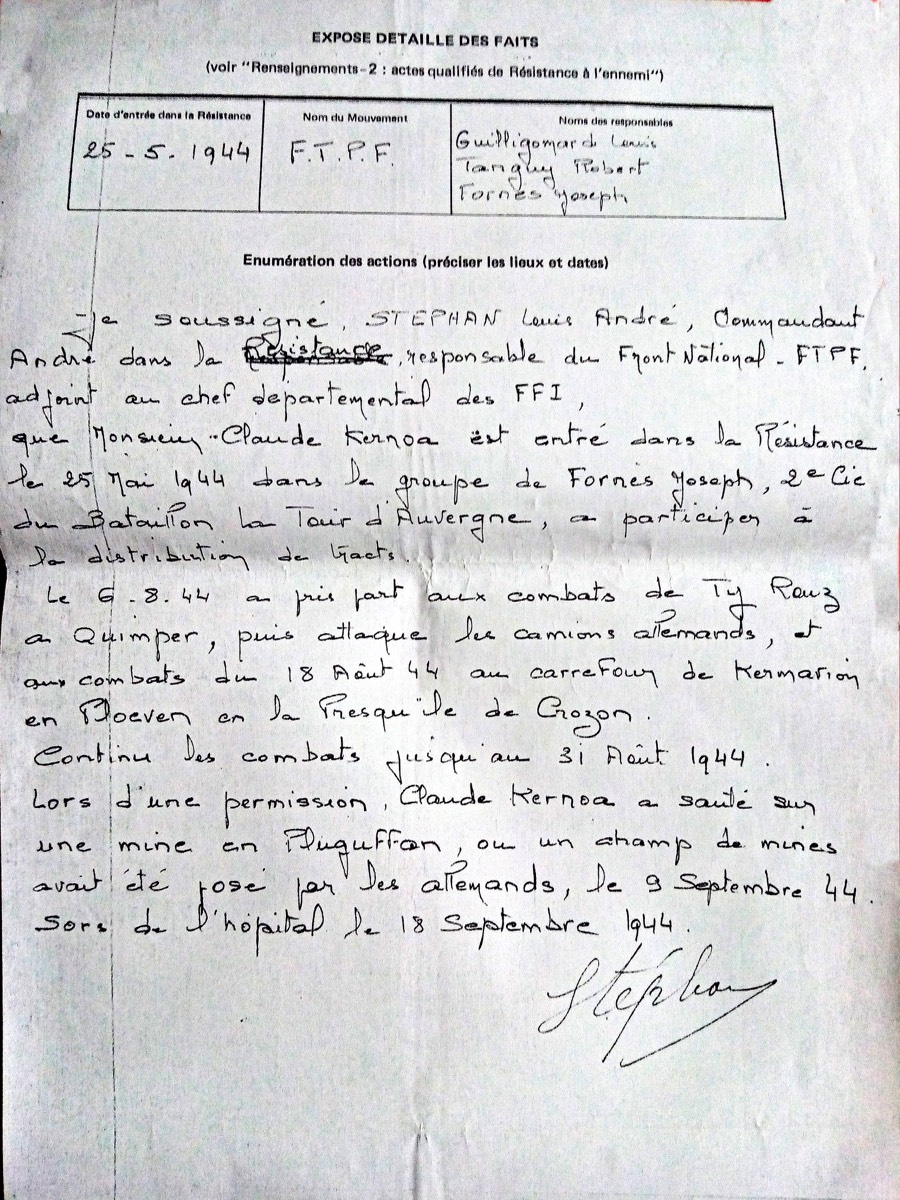 EXPOSE DETAILLE DES FAITS
(voir "Renseignements-2 : actes qualifiés de Résistance à l'ennemi")
Date d'entrée dans la Résistance
25-5.1944
Nom du Mouvement
F.T.P.F.
Noms des responsables
Guilligomard Louis
Tanguy Robert
Fornès Joseph
Enumération des actions (préciser les lieux et dates)
Je soussigné, STEPHAN Louis André, Commandant
André dans la Résistance, responsable du Front National - FTPF,
adjoint au chef départemental des FFI,
que Monsieur Claude Kernoa est entré dans la Résistance
le 25 Mai 1944 dans le groupe de Fornès Joseph, 2e Cie
du Bataillon La Tour d'Auvergne, a participer à
la distribution de tracts.
Le 6.8.44 a pris part aux combats de Ty Rouz
a Quimper, puis attaque les camions allemands, et
aux combats du 18 Août 44 au carrefour de Kermarion
en Ploeven en la Presqu'île de Crozon.
Continu les combats jusqu'au 31 Août 1944.
Lors d'une permission, Claude Kernoa a sauté sur
une mine en Pluguffan, ou un champ de mines
avait été posé par les allemands, le 9 Septembre 44.
Sors de l'hôpital le 18 Septembre 1944.
Stéphan